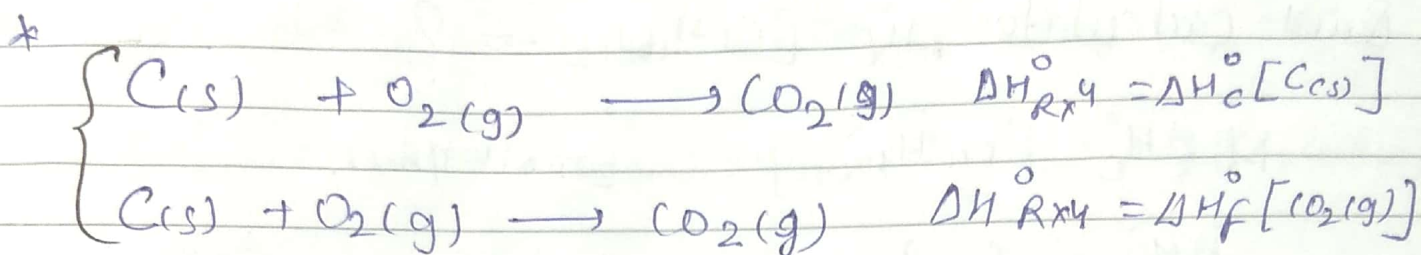 * C(s) + O₂(g) ⟶ CO₂(g) ΔH°Rxn = ΔH°c [C(s)]
C(s) + O₂(g) ⟶ CO₂(g) ΔH°Rxn = ΔH°f [CO₂(g)]